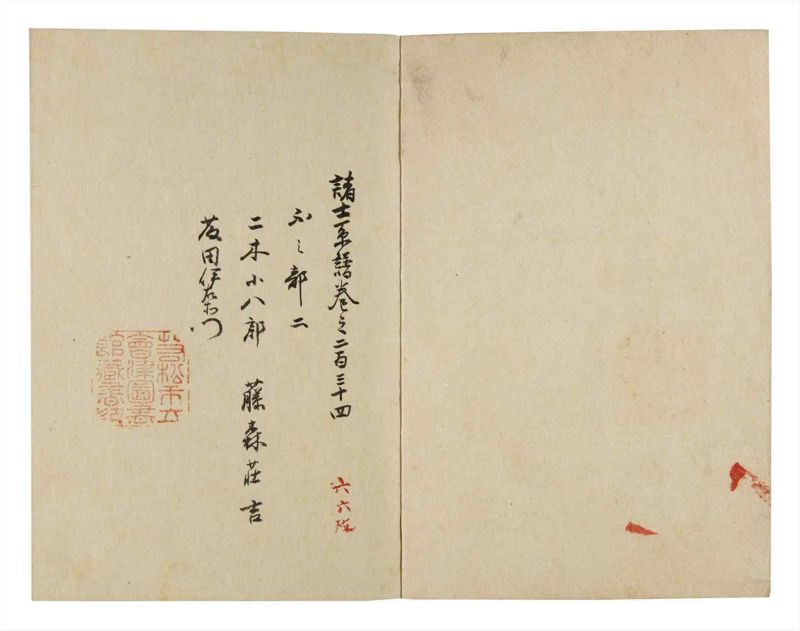 諸士系譜巻之二百三十四
ふ之部二
二木小八郎 藤森荘吉
藤田伊右衛門
六六
若松市立
會津圖書
館藏書印